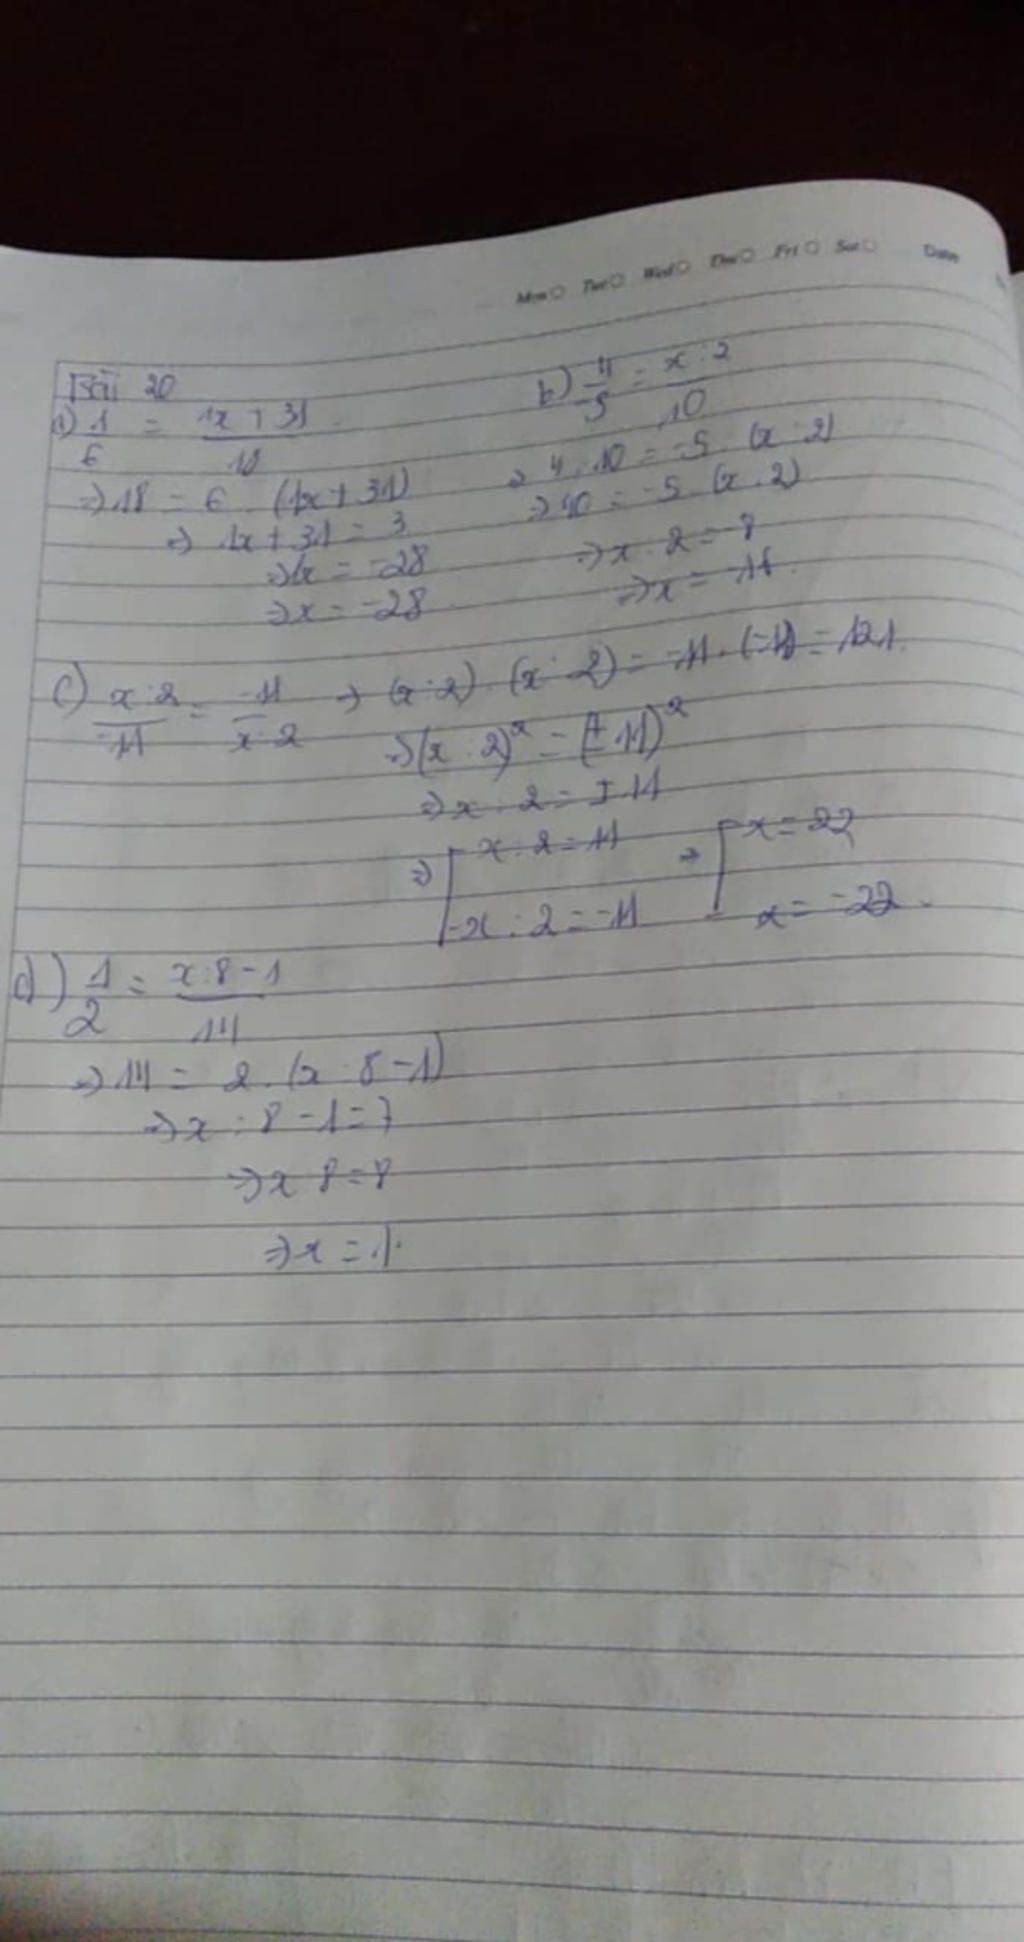 Mon Tue Wed Thu Fri Sat Date
Bài 20
a) 1/6 = 1x + 31/18
⇒ 18 = 6 . (1x + 31)
⇒ 1x + 31 = 3
⇒ 1x = -28
⇒ x = -28
b) 4/-5 = x : 2/10
⇒ 4 . 10 = -5 . (x : 2)
⇒ 40 = -5 . (x : 2)
⇒ x : 2 = -8
⇒ x = -16.
c) x : 2/-11 = -11/x : 2 ⇒ (x : 2) . (x : 2) = -11 . (-11) = 121.
⇒ (x : 2)² = (±11)²
⇒ x : 2 = ±11
⇒ [ x : 2 = 11 ⇒ [ x = 22
x : 2 = -11 x = -22.
d) 1/2 = x : 8 - 1/14
⇒ 14 = 2 . (x : 8 - 1)
⇒ x : 8 - 1 = 7
⇒ x 8 = 8
⇒ x = 1.